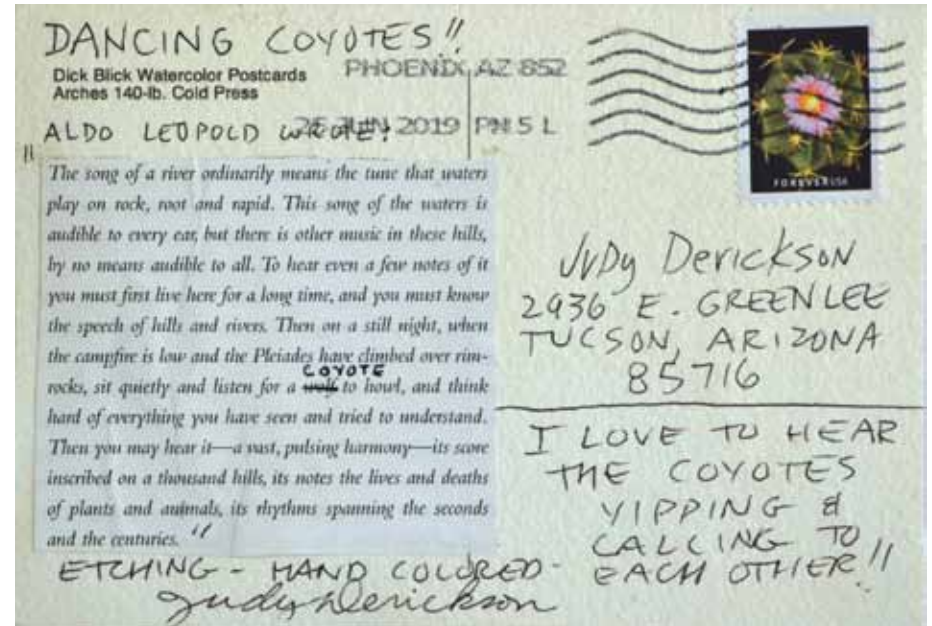 DANCING COYOTES!!
Dick Blick Watercolor Postcards
Arches 140-lb. Cold Press
PHOENIX, AZ 852
25 JUN 2019 PM 5 L
ALDO LEOPOLD WROTE:
"The song of a river ordinarily means the tune that waters
play on rock, root and rapid. This song of the waters is
audible to every ear, but there is other music in these hills,
by no means audible to all. To hear even a few notes of it
you must first live here for a long time, and you must know
the speech of hills and rivers. Then on a still night, when
the campfire is low and the Pleiades have climbed over rim-
COYOTE
rocks, sit quietly and listen for a wolf to howl, and think
hard of everything you have seen and tried to understand.
Then you may hear it—a vast, pulsing harmony—its score
inscribed on a thousand hills, its notes the lives and deaths
of plants and animals, its rhythms spanning the seconds
and the centuries."
ETCHING - HAND COLORED -
Judy Derickson
FOREVER USA
Judy Derickson
2936 E. GREENLEE
TUCSON, ARIZONA
85716
I LOVE TO HEAR
THE COYOTES
YIPPING &
CALLING TO
EACH OTHER!!